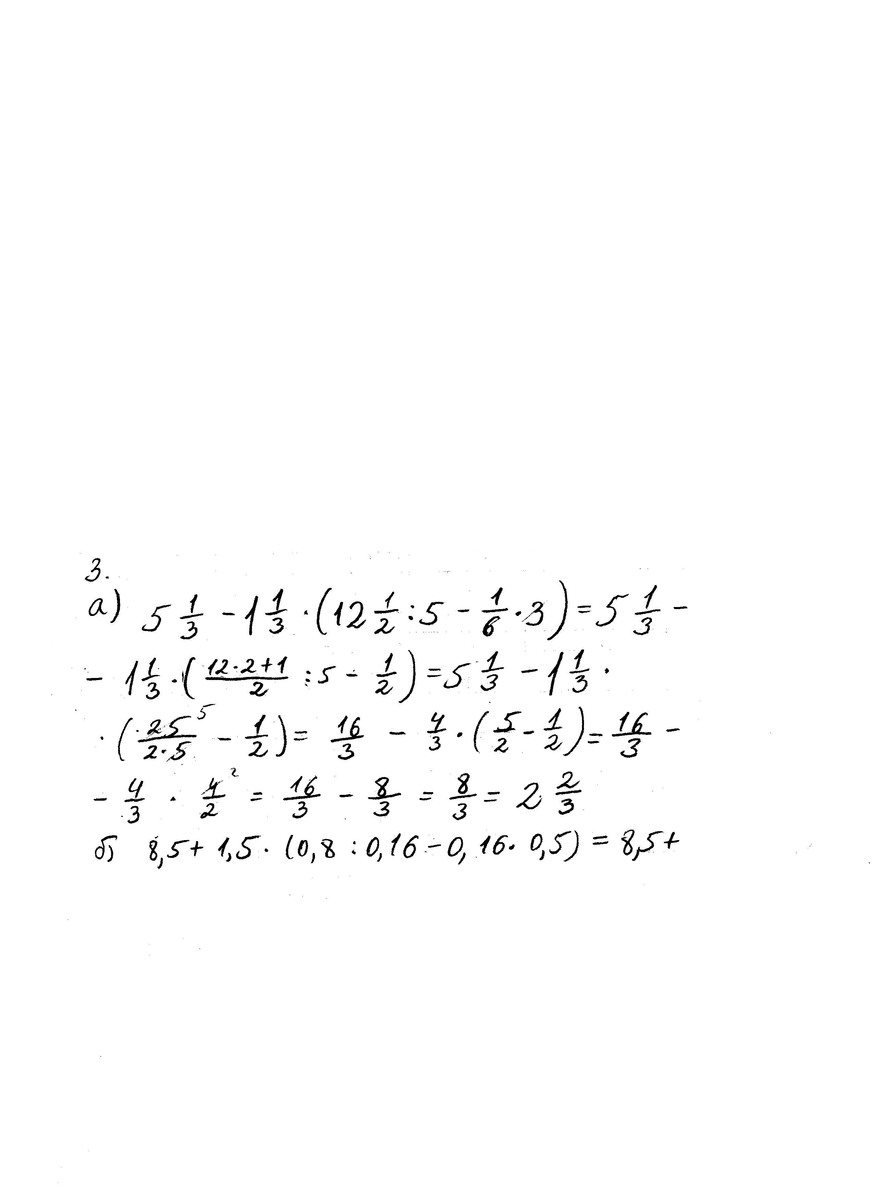 3.
а) 5 1/3 - 1 1/3 · (12 1/2 : 5 - 1/6 · 3) = 5 1/3 -
- 1 1/3 · (12·2+1/2 : 5 - 1/2) = 5 1/3 - 1 1/3 ·
· (25⁵/2·5 - 1/2) = 16/3 - 4/3 · (5/2 - 1/2) = 16/3 -
- 4/3 · 4²/2 = 16/3 - 8/3 = 8/3 = 2 2/3
б) 8,5 + 1,5 · (0,8 : 0,16 - 0,16 · 0,5) = 8,5 +